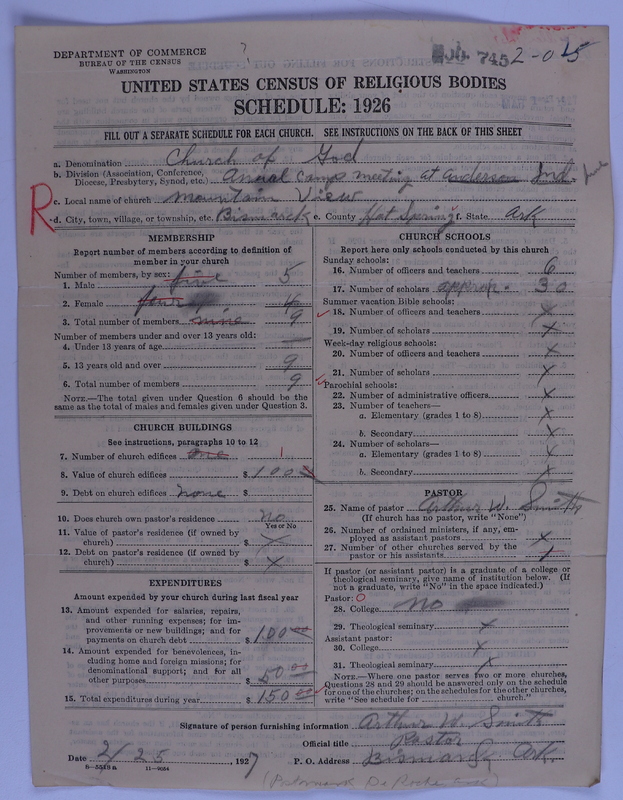 DEPARTMENT OF COMMERCE
BUREAU OF THE CENSUS
WASHINGTON
?
745 2-0 15
UNITED STATES CENSUS OF RELIGIOUS BODIES
SCHEDULE: 1926
FILL OUT A SEPARATE SCHEDULE FOR EACH CHURCH. SEE INSTRUCTIONS ON THE BACK OF THIS SHEET
a. Denomination Church of God
b. Division (Association, Conference, Diocese, Presbytery, Synod, etc.) Annual camp meeting at Anderson Ind. June
c. Local name of church Mountain View
R
d. City, town, village, or township, etc. Bismarck e. County Hot Spring f. State Ark
MEMBERSHIP
Report number of members according to definition of
member in your church
Number of members, by sex:
1. Male five 5
2. Female four 4
3. Total number of members nine 9
Number of members under and over 13 years old:
4. Under 13 years of age —
5. 13 years old and over 9
6. Total number of members 9
NOTE.—The total given under Question 6 should be
same as the total of males and females given under Question 3.
CHURCH BUILDINGS
See instructions, paragraphs 10 to 12
7. Number of church edifices one 1
8. Value of church edifices $ 100
9. Debt on church edifices none $
10. Does church own pastor's residence No
Yes or No
11. Value of pastor's residence (if owned by
church) $ x
12. Debt on pastor's residence (if owned by
church) $ x
EXPENDITURES
Amount expended by your church during last fiscal year
13. Amount expended for salaries, repairs,
and other running expenses; for im-
provements or new buildings; and for
payments on church debt $ 100 00
14. Amount expended for benevolences, in-
cluding home and foreign missions; for
denominational support; and for all
other purposes $ 50 00
15. Total expenditures during year $ 150 00
CHURCH SCHOOLS
Report here only schools conducted by this church
Sunday schools:
16. Number of officers and teachers 6
17. Number of scholars approx. 30
Summer vacation Bible schools:
18. Number of officers and teachers x
19. Number of scholars x
Week-day religious schools:
20. Number of officers and teachers x
21. Number of scholars x
Parochial schools:
22. Number of administrative officers x
23. Number of teachers—
a. Elementary (grades 1 to 8) x
b. Secondary x
24. Number of scholars—
a. Elementary (grades 1 to 8) x
b. Secondary x
PASTOR
25. Name of pastor Arthur W. Smith
(If church has no pastor, write "None")
26. Number of ordained ministers, if any, em-
ployed as assistant pastors x
27. Number of other churches served by the
pastor or his assistants 1
If pastor (or assistant pastor) is a graduate of a college or
theological seminary, give name of institution below. (If
not a graduate, write "No" in the space indicated.)
Pastor: O
28. College No
29. Theological seminary x
Assistant pastor:
30. College x
31. Theological seminary x
NOTE.—Where one pastor serves two or more churches,
Questions 28 and 29 should be answered only on the schedule
for one of the churches; on the schedules for the other churches,
write "See schedule for church."
Signature of person furnishing information Arthur W. Smith
Official title Pastor
Date 2/25 1927 P. O. Address Bismarck Ark.
8-5518a 11-9084